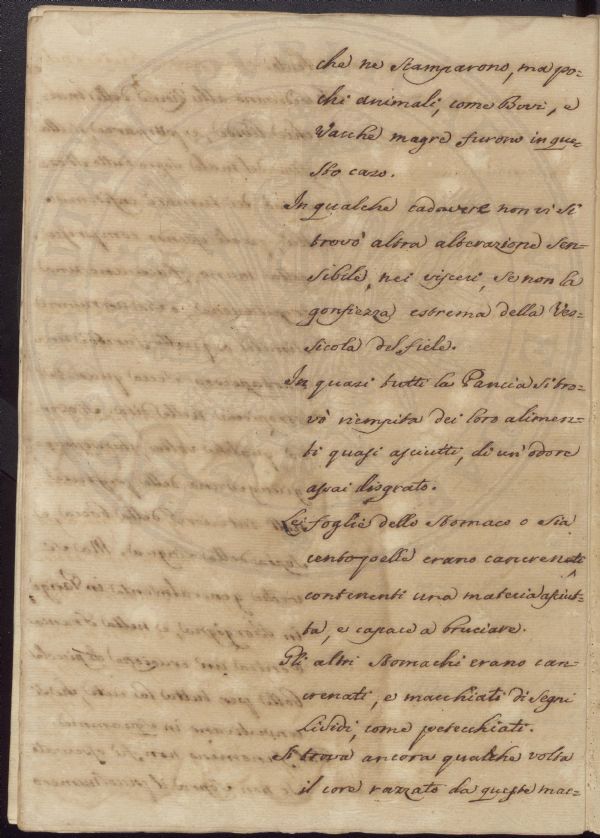 che ne scamparono, ma po-
chi animali, come Bovi, e
Vacche magre furono in que-
sto caso.
In qualche cadavere non vi si
trovò altra alterazione sen-
sibile, nei visceri, se non la
gonfiezza estrema della Ves-
sicola del fiele.
In quasi tutti la Pancia si tro-
vò riempita dei loro alimen-
ti quasi asciutti, di un' odore
assai disgrato.
Le foglie dello stomaco o sia
centopelle erano cancrenate
contenenti una materia asciut-
ta, e capace a bruciare.
Gli altri stomachi erano can-
crenati, e macchiati di segni
lividi, come petecchiati.
Si trova ancora qualche volta
il core razzato da queste mac-